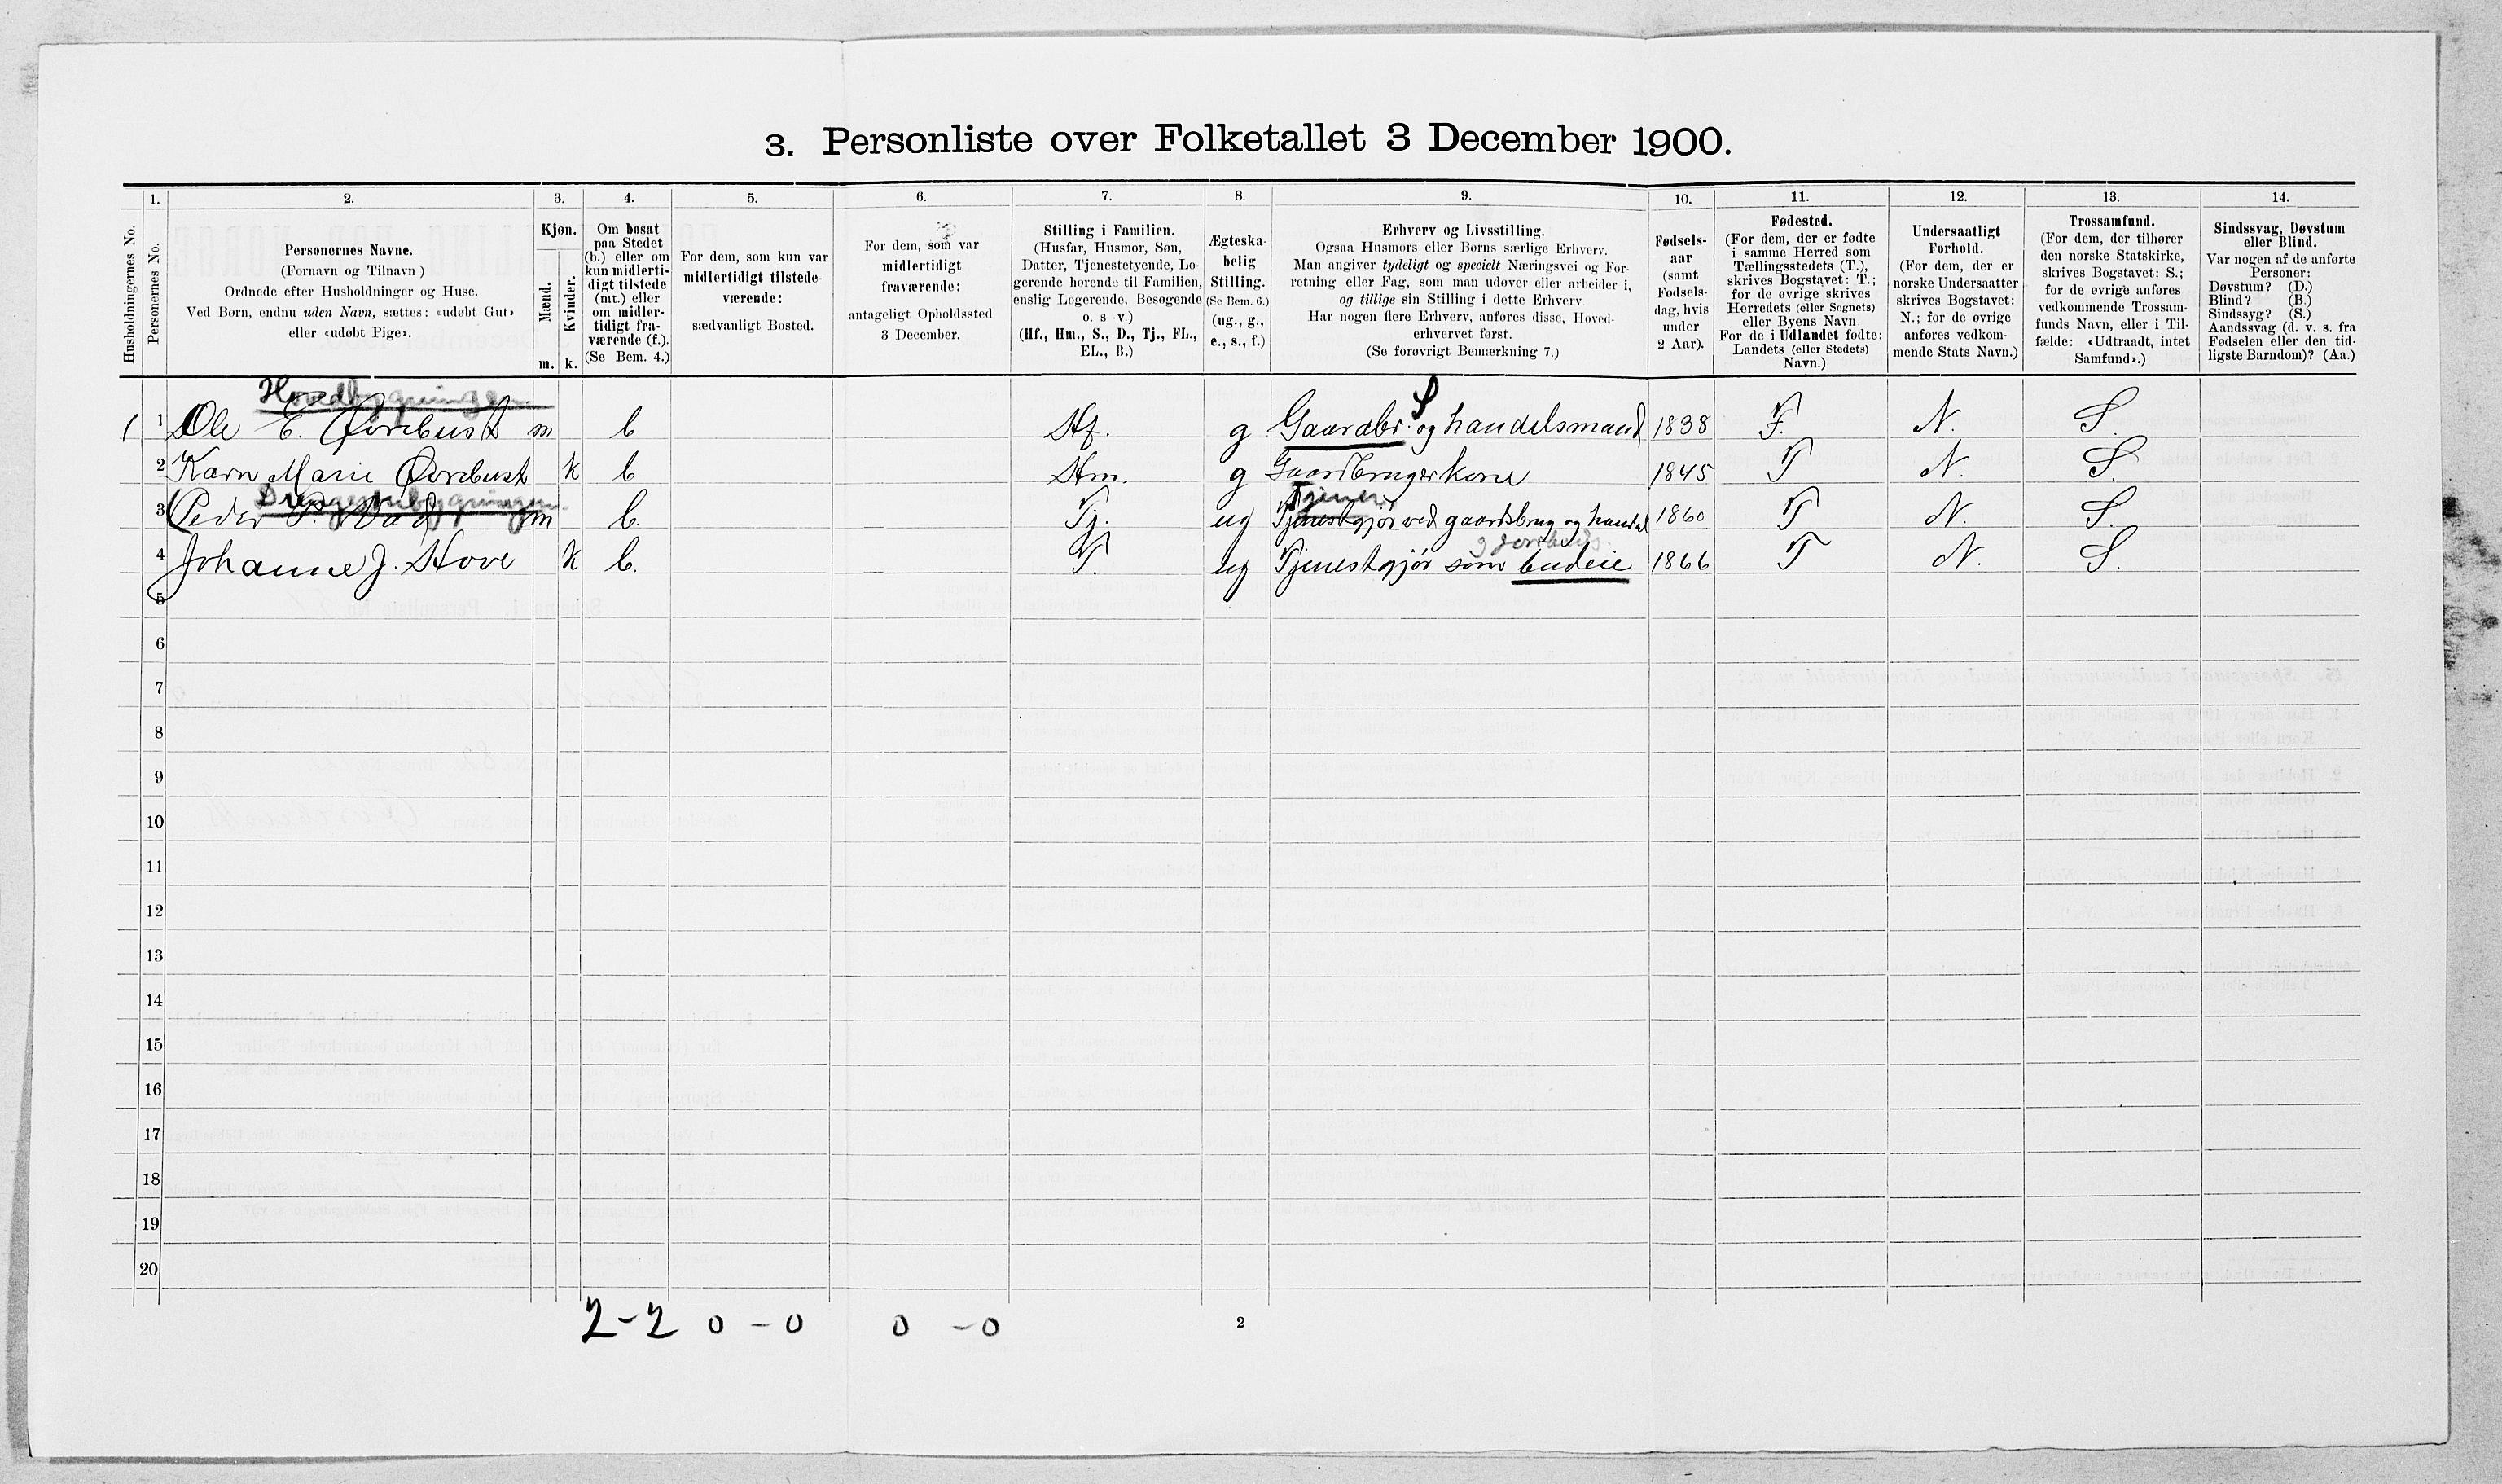 3. Personliste over Folketallet 3 December 1900.
Husholdningernes No.
1.
Personernes No.
2.
Personernes Navne.
(Fornavn og Tilnavn )
Ordnede efter Husholdninger og Huse.
Ved Børn, endnu uden Navn, sættes: «udøbt Gut»
eller «udøbt Pige».
3.
Kjøn.
Mænd.
Kvinder.
m. k.
4.
Om bosat
paa Stedet
(b.) eller om
kun midlerti-
digt tilstede
(mt.) eller
om midler-
tidigt fra-
værende (f.).
(Se Bem. 4.)
5.
For dem, som kun var
midlertidigt tilstede-
værende:
sædvanligt Bosted.
6.
For dem, som var
midlertidigt
fraværende:
antageligt Opholdssted
3 December.
7.
Stilling i Familien.
(Husfar, Husmor, Søn,
Datter, Tjenestetyende, Lo-
gerende hørende til Familien,
enslig Logerende, Besøgende
o. s v.)
(Hf., Hm., S., D., Tj., FL.,
EL., B.)
8.
Ægteska-
belig
Stilling.
(Se Bem. 6.)
(ug., g.,
e., s., f.)
9.
Erhverv og Livsstilling.
Ogsaa Husmors eller Børns særlige Erhverv.
Man angiver tydeligt og specielt Næringsvei og For-
retning eller Fag, som man udøver eller arbeider i,
og tillige sin Stilling i dette Erhverv
Har nogen flere Erhverv, anføres disse, Hoved-
erhvervet først.
(Se forøvrigt Bemærkning 7.)
10.
Fødsels-
aar
(samt
Fødsels-
dag, hvis
under
2 Aar).
11.
Fødested.
(For dem, der er fødte
i samme Herred som
Tællingsstedets (T.),
skrives Bogstavet: T.;
for de øvrige skrives
Herredets (eller Sognets)
eller Byens Navn
For de i Udlandet fødte:
Landets (eller Stedets)
Navn.)
12.
Undersaatligt
Forhold.
(For dem, der er
norske Undersaatter
skrives Bogstavet:
N.; for de øvrige
anføres vedkom-
mende Stats Navn.)
13.
Trossamfund.
(For dem, der tilhører
den norske Statskirke,
skrives Bogstavet: S.;
for de øvrige anføres
vedkommende Trossam-
funds Navn, eller i Til-
fælde: «Udtraadt, intet
Samfund».)
14.
Sindssvag, Døvstum
eller Blind.
Var nogen af de anførte
Personer:
Døvstum? (D.)
Blind? (B.)
Sindssyg? (S.)
Aandssvag (d. v. s. fra
Fødselen eller den tid-
ligste Barndom)? (Aa.)
Hovedbygningen
S
1 1 Ole E. Øvrebust m b Hf. g Gaardbr. og handelsmand 1838 T. N. S.
2 Karn Marie Øvrebust k b Hm. g Gaardbrugerkone 1845 T N. S.
Drengestubygningen
Tjener
3 Peder P. m b. Tj. ug Tjenestgjør ved gaardsbrug og handel 1860 T N. S.
4 Johanne J. Hove k b. T. ug Tjenestgjør som budeie 1866 T N. S.
5
6
7
8
9
10
11
12
13
14
15
16
17
18
19
20
2-2 0-0 0-0
2